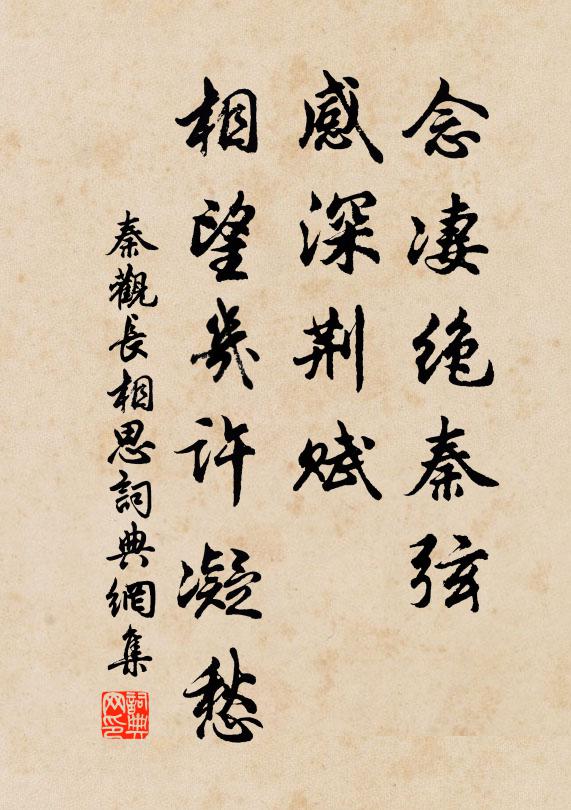 念凄绝秦弦
感深荆赋
相望几许凝愁
秦觀長相思詞典網集
詞典网印